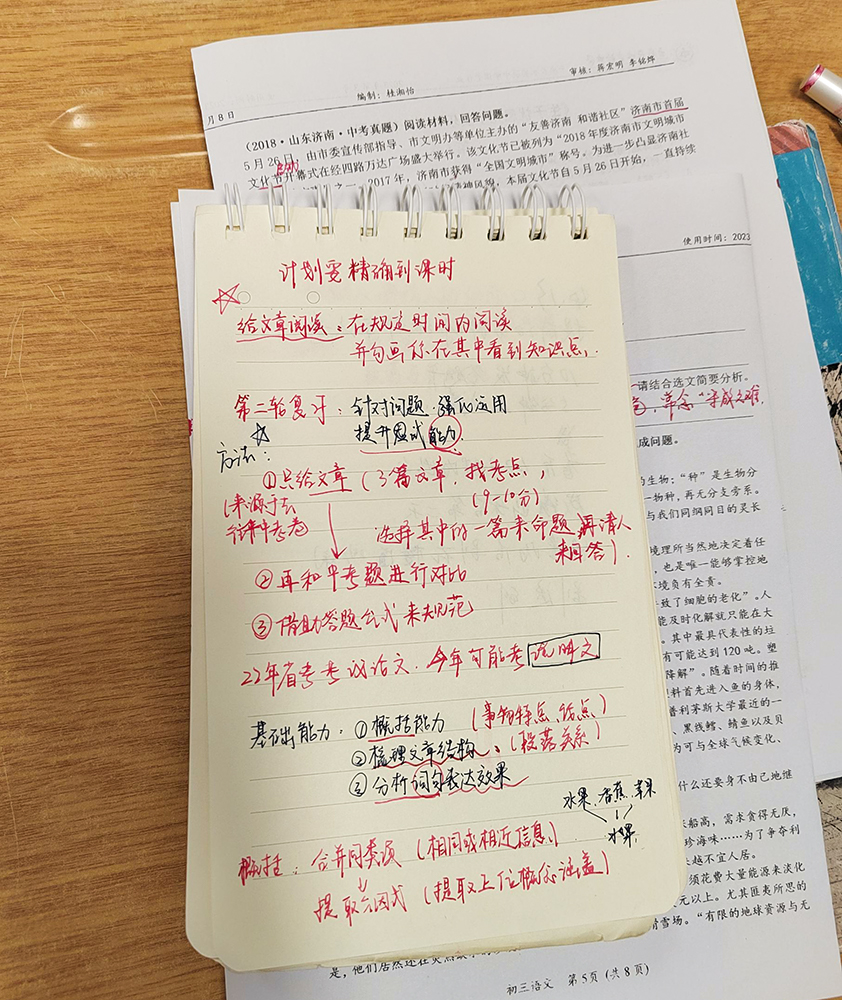 编制：桂湘怡
审核：蒋宏明 李铭烨
月8日
(2018·山东济南·中考真题）阅读材料，回答问题。
5月26日，由市委宣传部指导、市文明办等单位主办的“友善济南 和谐社区”济南市首届
文化节开幕式在经四路万达广场盛大举行。该文化节已被列为“2018年度济南市文明城市
2017年，济南市获得“全国文明城市”称号。为进一步凸显济南社
精神风貌，本届文化节自5月26日开始，一直持续
使用时间：2023
计划要精确到课时
给文章阅读：在规定时间内阅读
并勾画你在其中看到知识点．
第二轮复习：针对问题．强化运用
提升应试能力．
方法：
①只给文章（3篇文章．找考点，
（来源于去
往年中考卷
（9-10分）
选择其中的一篇来命题 再请人
来回答）．
②再和中考题进行对比
③借助答题公式来规范
22年省考考议论文．今年可能考说明文
基础能力．①概括能力（事物特点．话点）
②梳理文章结构、（段落关系）
③分析词句表达效果
水果．香蕉．苹果
水果
概括：合并同类项（相同或相近信息）
提取公因式（提取上位概念涵盖）
请结合选文简要分析。
成问题。
的生物；“种”是生物分
一物种，再无分支旁系。
与我们同纲同目的灵长
境理所当然地决定着任
，也是唯一能够掌控地
环境负有全责。
导致了细胞的老化”。人
能及时化解就只能在大
。其中最具代表性的垃
有可能达到120吨。塑
降解”。随着时间的推
料首先进入鱼的身体，
普利茅斯大学最近的一
、黑线鳕、鲭鱼以及贝
为可与全球气候变化、
什么还要身不由己地继
船高，需求贪得无厌，
珍海味……为了争夺利
越不宜人居。
须花费大量能源来淡化
元以上。尤其匪夷所思的
滑雪场。“有限的地球资源与无
初三语文 第5页（共8页）